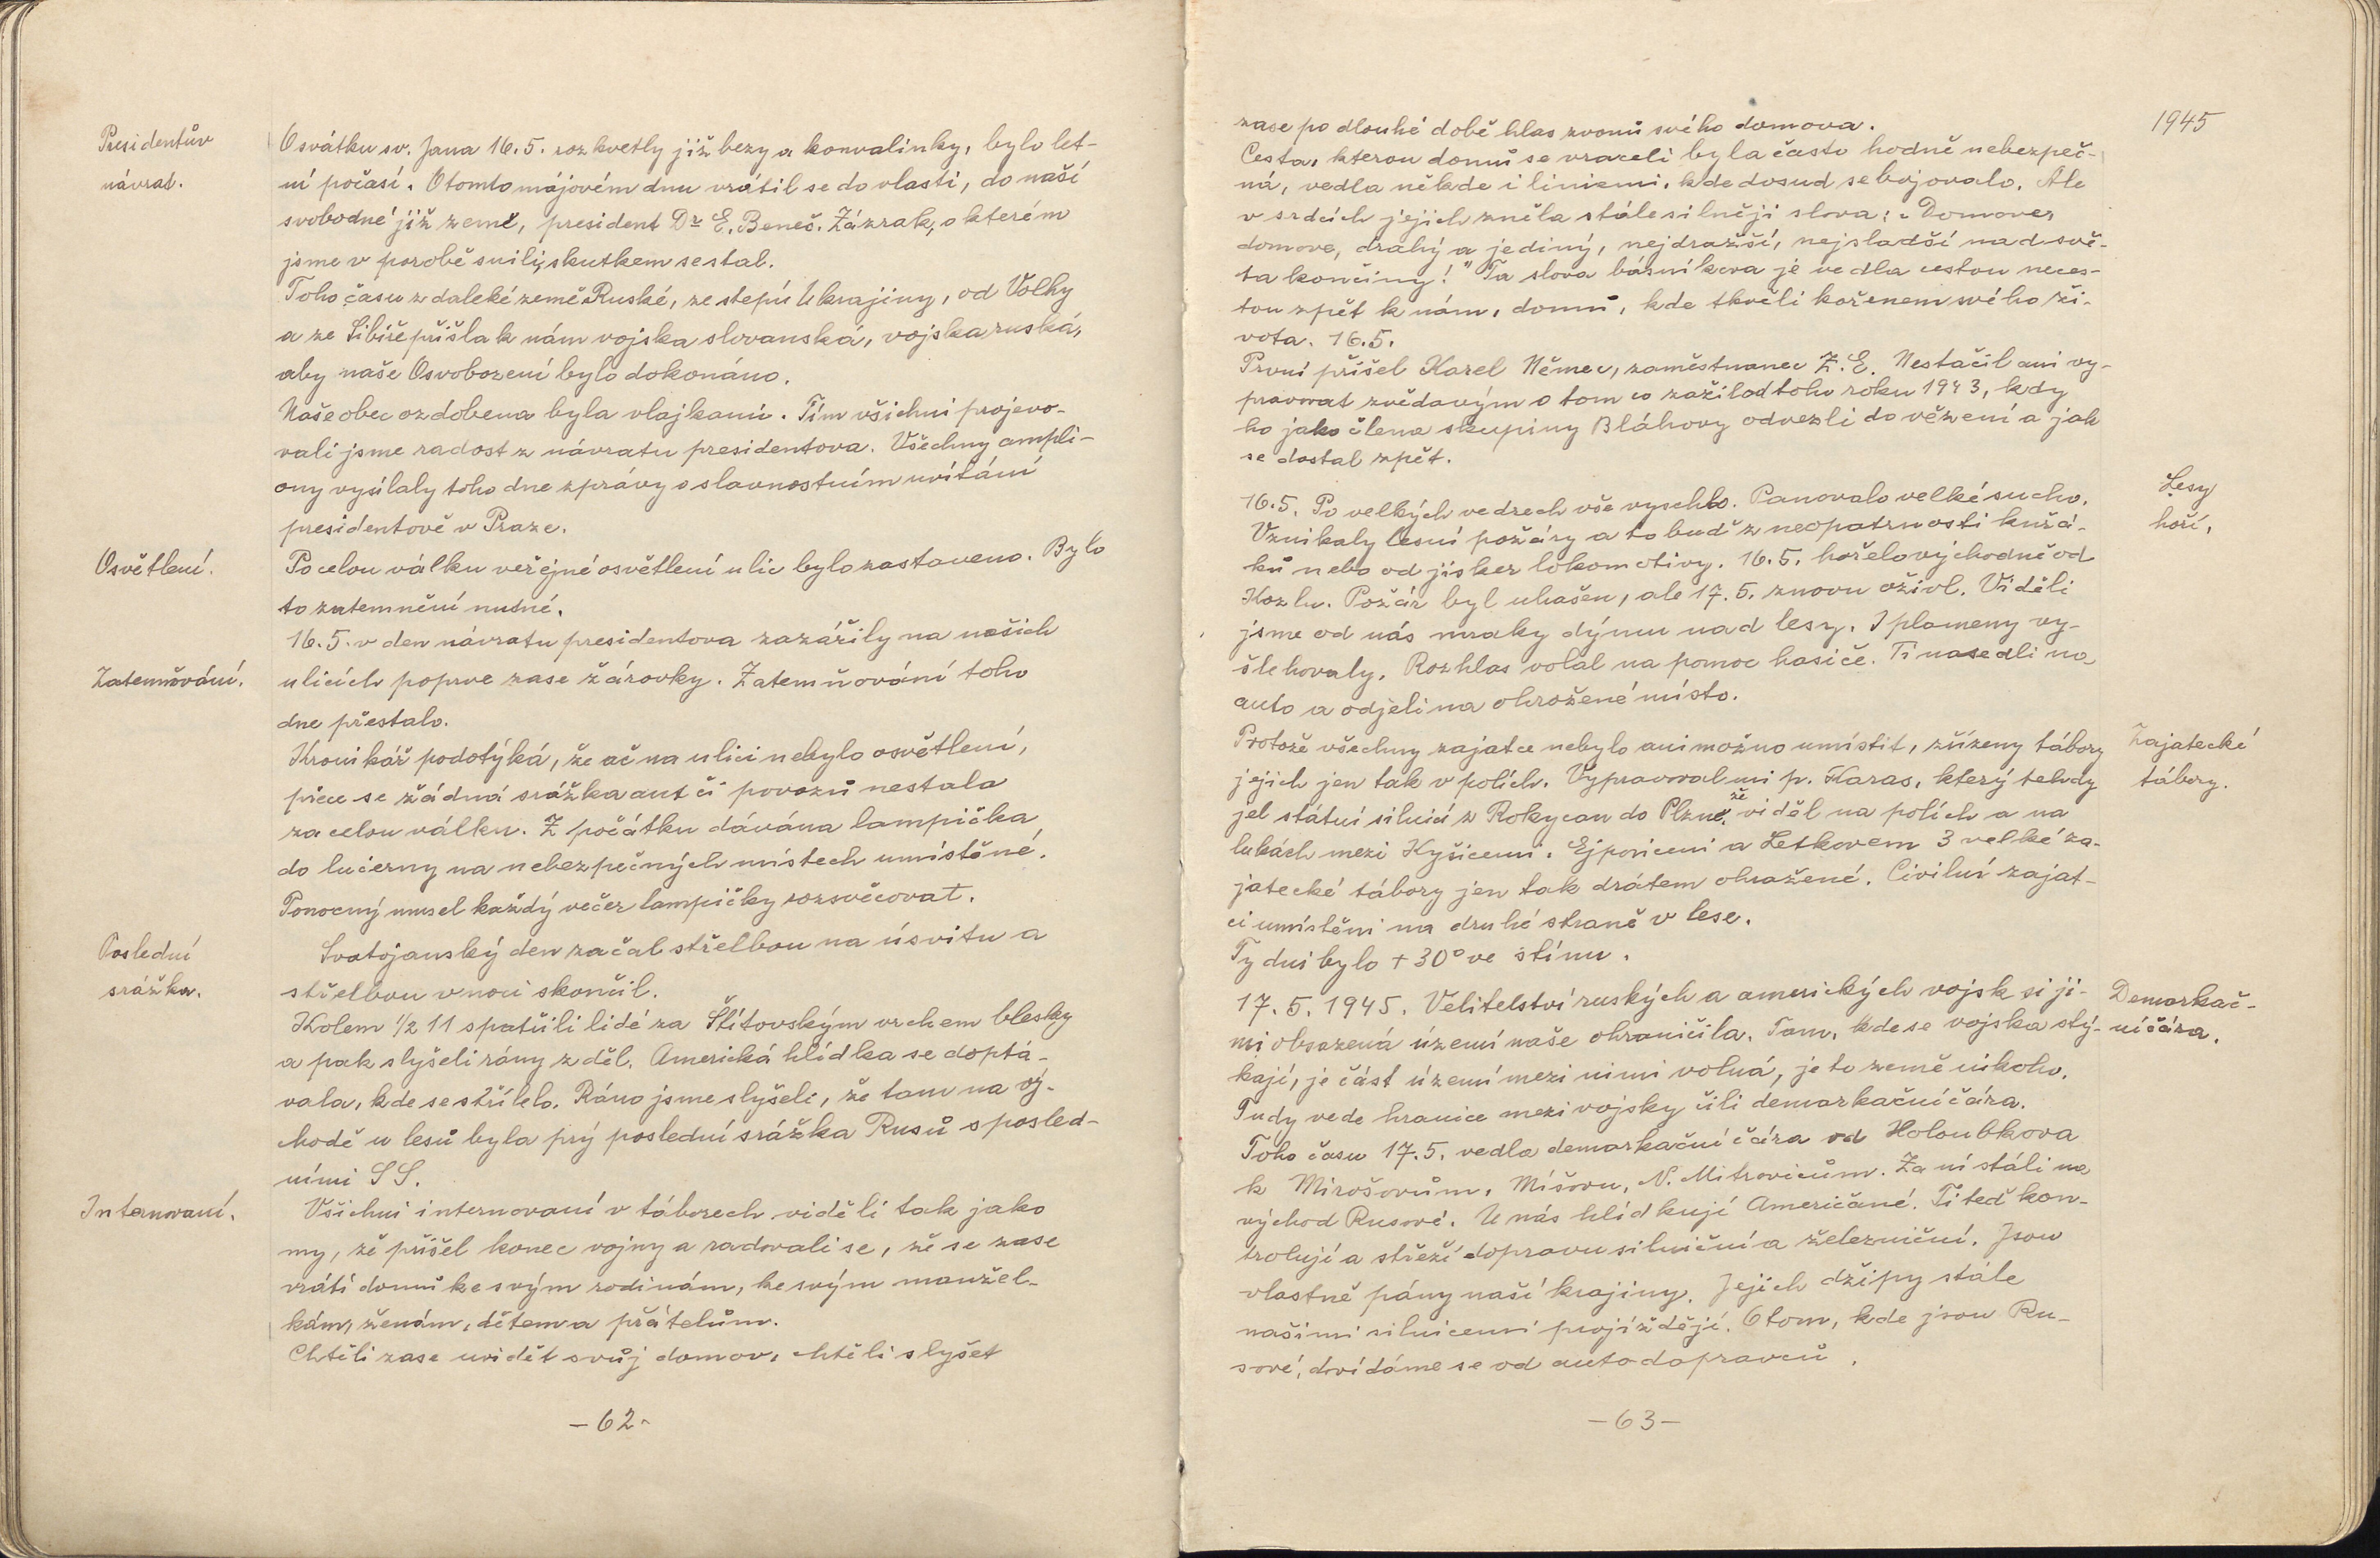 Presidentův
návrat.
O svátku sv. Jana 16.5. rozkvetly již bezy a konvalinky, bylo let-
ní počasí. O tomto májovém dnu vrátil se do vlasti, do naší
svobodné již země, president Dr E. Beneš. Zázrak, o kterém
jsme v porobě snili, skutkem se stal.
Toho času z daleké země Ruské, ze stepí Ukrajiny, od Volky
a ze Sibiře přišla k nám vojska slovanská, vojska ruská,
aby naše Osvobození bylo dokonáno.
Naše obec ozdobena byla vlajkami. Tím všichni projevo-
vali jsme radost z návratu presidentova. Všechny ampli-
ony vysílaly toho dne zprávy o slavnostním uvítání
presidentově v Praze.
Osvětlení.
Po celou válku veřejné osvětlení ulic bylo zastaveno. Bylo
to zatemnění nutné.
16.5. v den návratu presidentova zazářily na našich
Zatemňování.
ulicích poprve zase žárovky. Zatemňování toho
dne přestalo.
Kronikář podotýká, že ač na ulici nebylo osvětlení,
přece se žádná srážka aut či povozů nestala
za celou válku. Z počátku dávána lampička
do lucerny na nebezpečných místech umístěné.
Ponocný musel každý večer lampičky rozsvěcovat.
Poslední
srážka.
Svatojanský den začal střelbou na úsvitu a
střelbou v noci skončil.
Kolem 1/2 11 spatřili lidé za Štítovským vrchem blesky
a pak slyšeli rány z děl. Americká hlídka se doptá-
vala, kde se střílelo. Ráno jsme slyšeli, že tam na vý-
chodě u lesů byla prý poslední srážka Rusů s posled-
ními SS.
Internovaní.
Všichni internovaní v táborech viděli tak jako
my, že přišel konec vojny a radovali se, že se zase
vrátí domů ke svým rodinám, ke svým manžel-
kám, ženám, dětem a přátelům.
Chtěli zase uvidět svůj domov, chtěli slyšet
-62-
1945
zase po dlouhé době hlas zvonů svého domova.
Cesta, kterou domů se vraceli byla často hodně nebezpeč-
ná, vedla někde i liniemi, kde dosud se bojovalo. Ale
v srdcích jejich zněla stále silněji slova: „Domove,
domove, drahý a jediný, nejdražší, nejsladší nad svě-
ta končiny!" Ta slova básníkova je vedla cestou neces-
tou zpět k nám, domů, kde tkvěli kořenem svého ži-
vota. 16.5.
První přišel Karel Němec, zaměstnanec Z.E. Nestačil ani vy-
pravovat zvědavým o tom co zažil od toho roku 1943, kdy
ho jako člena skupiny Bláhovy odvezli do vězení a jak
se dostal zpět.
Lesy
hoří.
16.5. Po velkých vedrech vše vyschlo. Panovalo velké sucho.
Vznikaly lesní požáry a to buď z neopatrnosti kuřá-
ků nebo od jisker lokomotivy. 16.5. hořelo východně od
Kozlu. Požár byl uhašen, ale 17.5. znovu oživl. Viděli
jsme od nás mraky dýmu nad lesy. I plameny vy-
šlehovaly. Rozhlas volal na pomoc hasiče. Ti nasedli na
auto a odjeli na ohrožené místo.
Zajatecké
tábory.
Protože všechny zajatce nebylo ani možno umístit, zřízeny tábory
jejich jen tak v polích. Vypravoval mi p. Karas, který tehdy
jel státní silnicí z Rokycan do Plzně, že viděl na polích a na
lukách mezi Kyšicemi, Ejpovicemi a Letkovem 3 velké za-
jatecké tábory jen tak drátem ohražené. Civilní zajat-
ci umístěni na druhé straně v lese.
Ty dni bylo +30° ve stínu.
Demarkač-
ní čára.
17.5.1945. Velitelství ruských a amerických vojsk si ji-
mi obsazená území naše ohraničila. Tam, kde se vojska stý-
kají, je část území mezi nimi volná, je to země nikoho.
Tudy vede hranice mezi vojsky čili demarkační čára.
Toho času 17.5. vedla demarkační čára od Holoubkova
k Mirošovům, Míšovu, N. Mitrovicům. Za ní stáli na
východ Rusové. U nás hlídkují Američané. Ti teď kon-
trolují a střeží dopravu silniční a železniční. Jsou
vlastně pány naší krajiny. Jejich džípy stále
našimi silnicemi projíždějí. O tom, kde jsou Ru-
sové, dovídáme se od autodopravců.
-63-